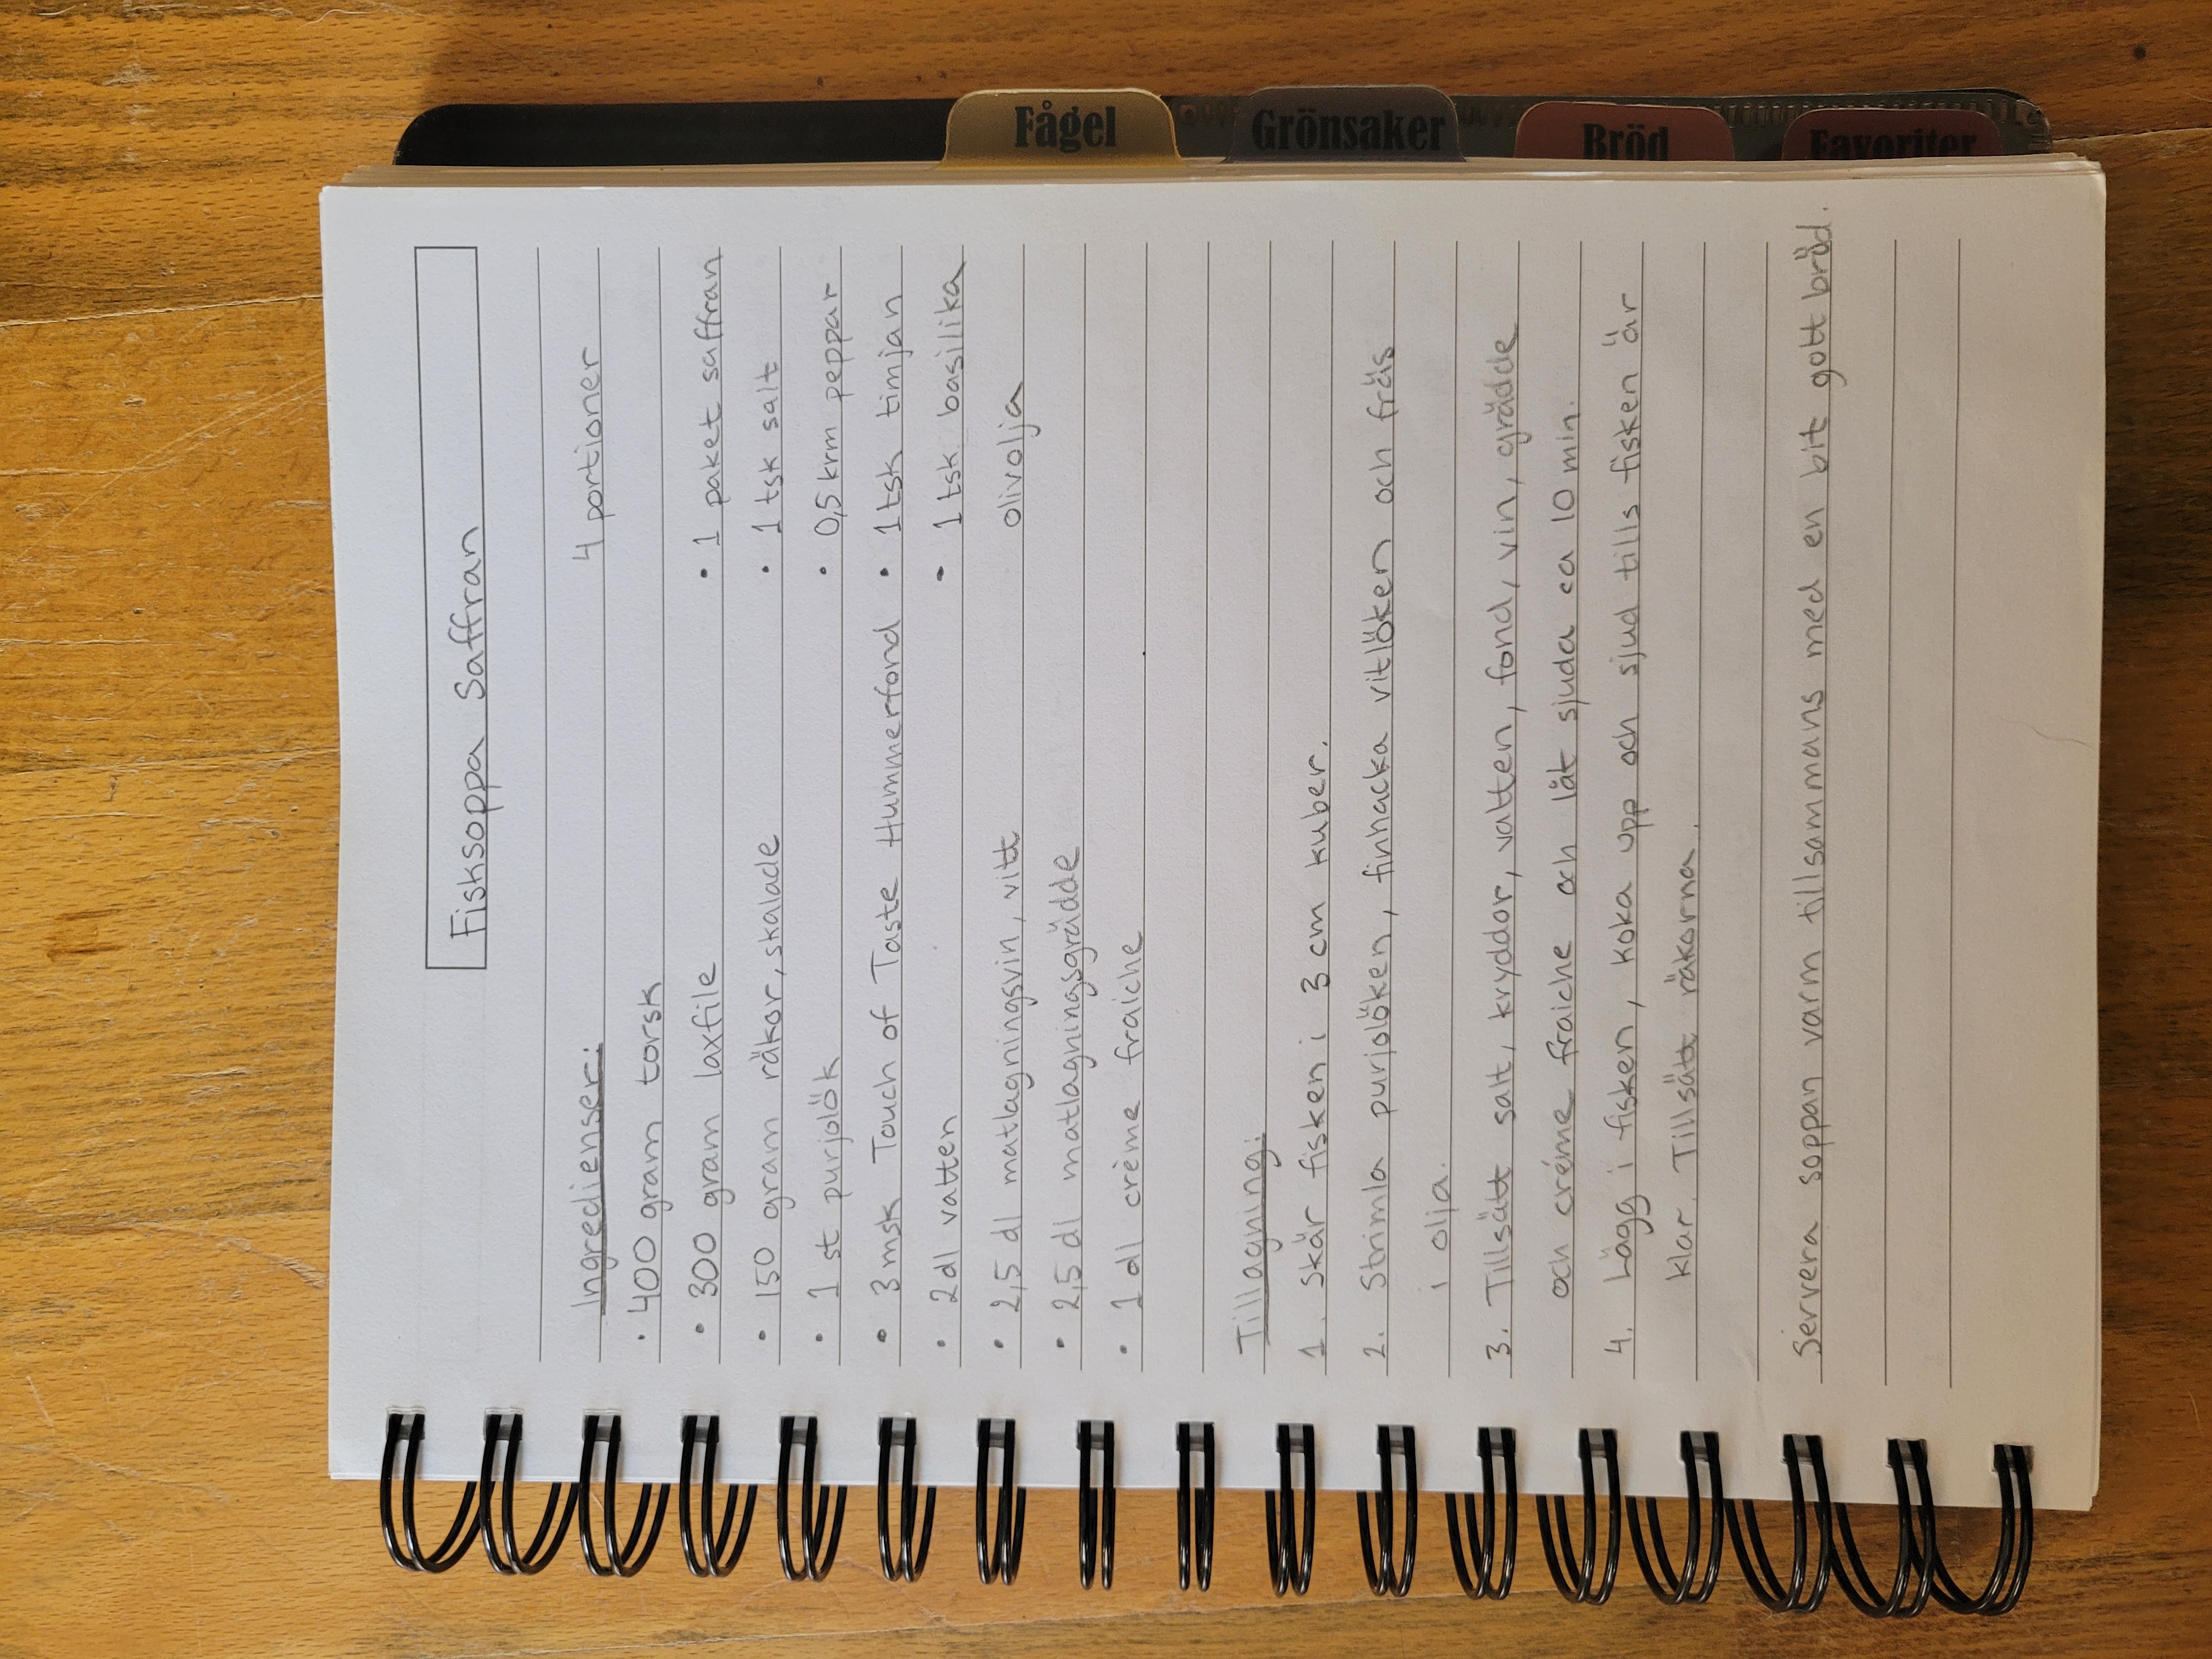 Fågel
Grönsaker
Bröd
Favoriter
Fisksoppa Saffran
Ingredienser: 4 portioner
• 400 gram torsk
• 300 gram laxfile • 1 paket saffran
• 150 gram räkor, skalade • 1 tsk salt
• 1 st purjolök • 0,5 krm peppar
• 3 msk Touch of Taste Hummerfond • 1 tsk timjan
• 2 dl vatten • 1 tsk basilika
• 2,5 dl matlagningsvin, vitt olivolja
• 2,5 dl matlagningsgrädde
• 1 dl crème fraiche
Tillagning:
1. Skär fisken i 3 cm kuber.
2. Strimla purjolöken, finhacka vitlöken och fräs
i olja.
3. Tillsätt salt, kryddor, vatten, fond, vin, grädde
och créme fraiche och låt sjuda ca 10 min.
4. Lägg i fisken, koka upp och sjud tills fisken är
klar. Tillsätt räkorna.
Servera soppan varm tillsammans med en bit gott bröd.